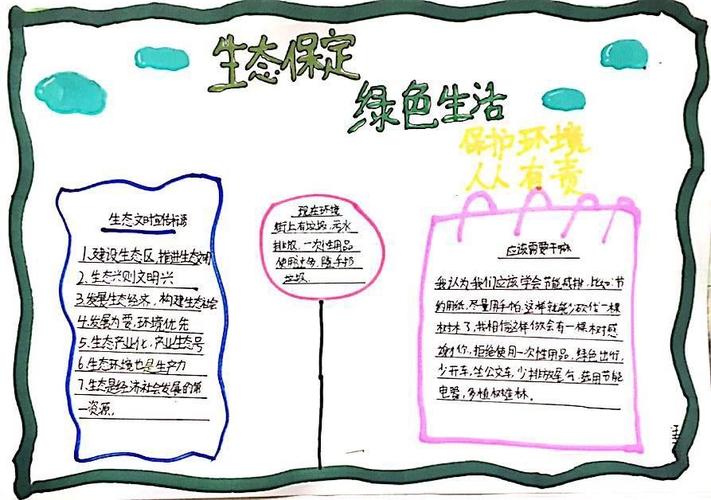 生态保定
绿色生活
保护环境
人人有责
生态文明宣传标语
1.建设生态区,推进生态文明
2.生态兴则文明兴
3.发展生态经济,构建生态社会
4.发展为要,环境优先
5.生态产业化,产业生态
6.生态环境也是生产力
7.生态是经济社会发展的第
一资源。
现在环境
街上有垃圾,污水
排放,一次性用品
使用,随手扔
垃圾.
应该需要干嘛
我认为我们应该学会节能减排,比如:节
约用纸,尽量用手帕,这样就能少砍伐一棵
树木了,我相信这样做会有一棵树感
谢你,拒绝使用一次性用品,绿色出行,
少开车,坐公交车,少排放尾气,使用节能
电器,多植树造林。